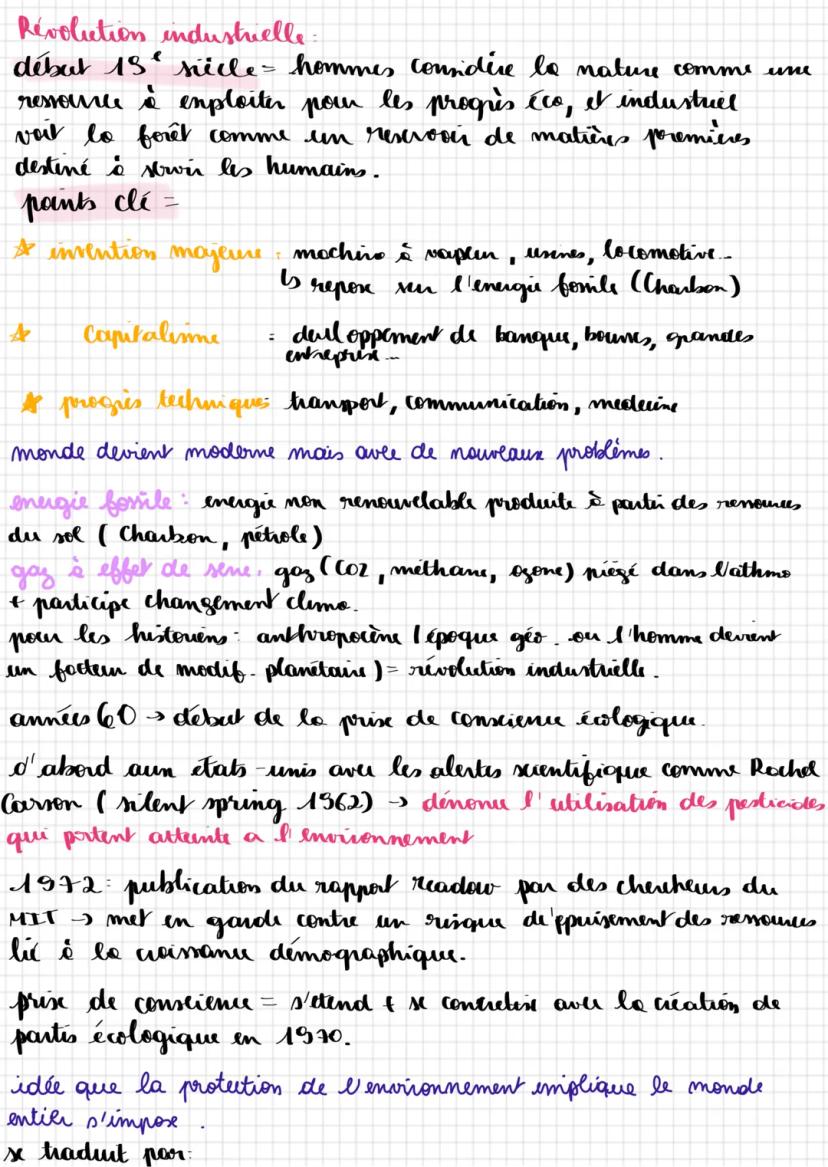 Révolution industrielle :
début 19e siècle = hommes considère la nature comme une
ressource à exploiter pour les progrès éco, et industriel
voit la forêt comme un reservoir de matières premières
destiné à servir les humains.
points clé =
☆ invention majeure : machine à vapeur, usines, locomotive...
↳ repose sur l'energie fossile (Charbon)
☆ Capitalisme = developpement de banque, bourses, grandes
entreprise...
★ progrès technique : transport, communication, medecine
monde devient moderne mais avec de nouveaux problèmes.
energie fossile : energie non renouvelable produite à partir des ressources
du sol (Charbon, pétrole)
gaz à effet de serre : gaz (CO2, méthane, ozone) piégé dans l'athmo
+ participe changement clima.
pour les historiens : anthropocène (époque géo. ou l'homme devient
un facteur de modif. planétaire) = révolution industrielle.
années 60 → début de la prise de conscience écologique.
d'abord aux états-unis avec les alertes scientifique comme Rachel
Carson (silent spring 1962) → dénonce l'utilisation des pesticides
qui portent atteinte a l'environnement
1972 : publication du rapport readow par des chercheurs du
MIT → met en garde contre un risque de'epuisement des ressources
lié à la croissance démographique.
prise de conscience = s'etend + se concretise avec la création de
partis écologique en 1970.
idée que la protection de l'environnement implique le monde
entier s'impose.
se traduit par :